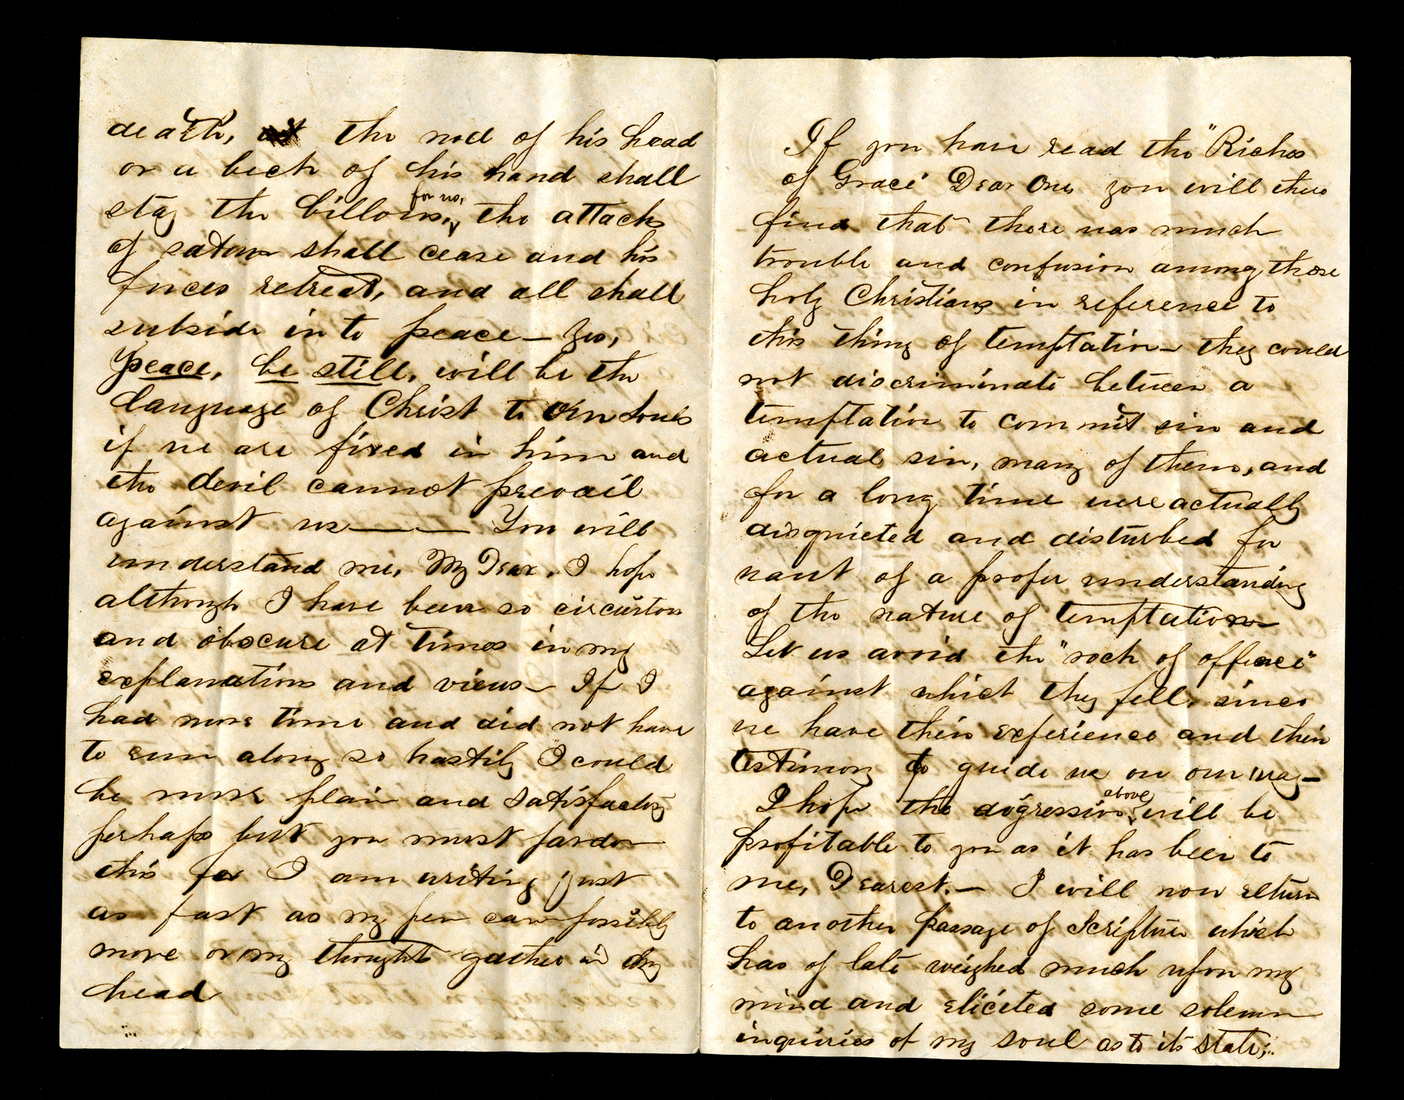 death, the nod of his head
or a beck of his hand shall
stay the billows, for us, the attack
of satan shall cease and his
forces retreat, and all shall
subside into peace — Yes,
Peace, be still, will be the
language of Christ to our souls
if we are fixed in him and
the devil cannot prevail
against us — — You will
understand me, My Dear, I hope
although I have been so circuitous
and obscure at times in my
explanations and views — If I
had more time and did not have
to run along so hastily I could
be more plain and satisfactory
perhaps but you must pardon
this for I am writing just
as fast as my pen can possibly
move or my thoughts gather in my
head
If you have read the "Riches
of Grace" Dear One you will there
find that there was much
trouble and confusion among those
holy Christians in reference to
this thing of temptation — they could
not discriminate between a
temptation to commit sin and
actual sin, many of them, and
for a long time were actually
disquieted and disturbed for
want of a proper understanding
of the nature of temptation —
Let us avoid the "rock of offence"
against which they fell, since
we have their experience and their
testimony to guide us on our way —
I hope the digression above will be
profitable to you as it has been to
me, Dearest. — I will now return
to another passage of Scripture which
has of late weighed much upon my
mind and elicited some solemn
inquiries of my soul as to its state;